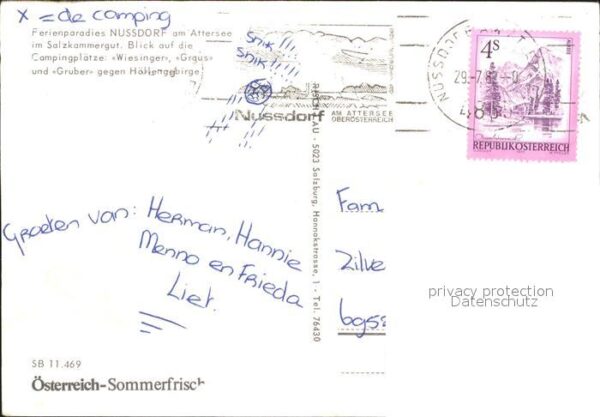 x = de camping
Ferienparadies NUSSDORF am Attersee
im Salzkammergut. Blick auf die
Campingplätze: »Wiesinger«, »Graus«
und »Gruber« gegen Höllengebirge
snik !!!
snik !!!!!
Nussdorf AM ATTERSEE
OBERÖSTERREICH
NUSSDORF
29.-7.82
4S
REPUBLIK ÖSTERREICH
5023 Salzburg, Hannakstrasse, 1 - Tel. 76430
Groeten van: Herman, Hannie
Menno en Frieda
Liet.
Fam
Zilve
6952
privacy protection
Datenschutz
SB 11.469
Österreich-Sommerfrisch